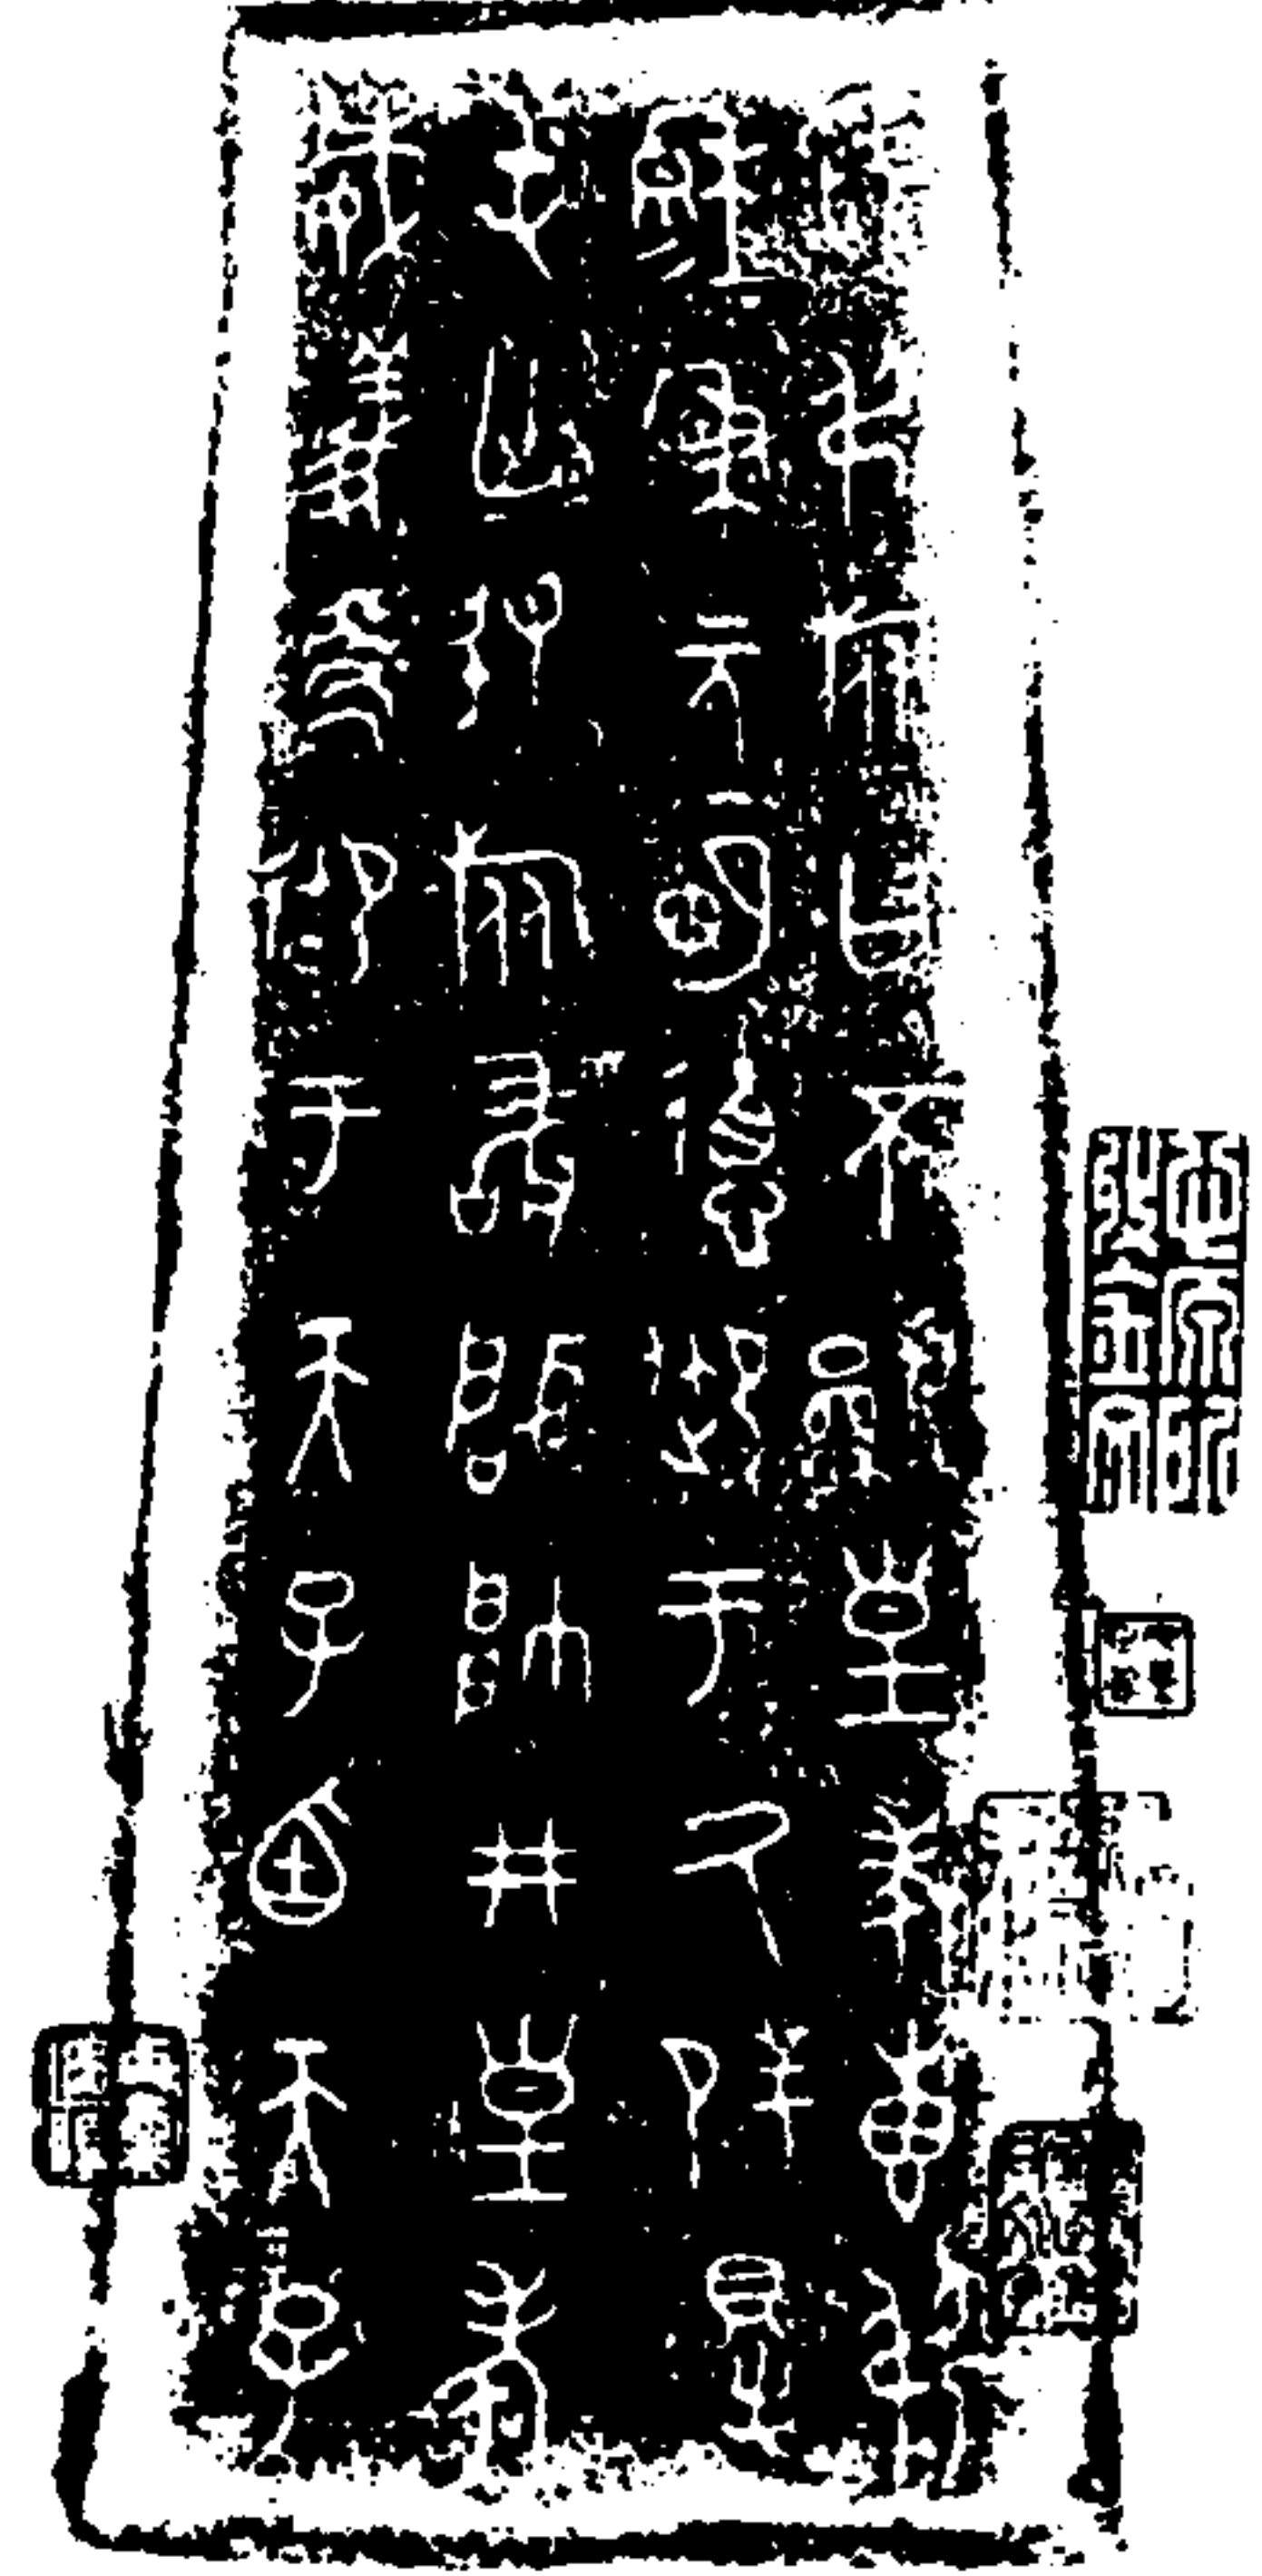 虢叔旅曰不顯皇考叀叔
穆秉元明德御于厥辟得
屯亡敃旅敢肇帥井皇考
威義御于天子廼天子